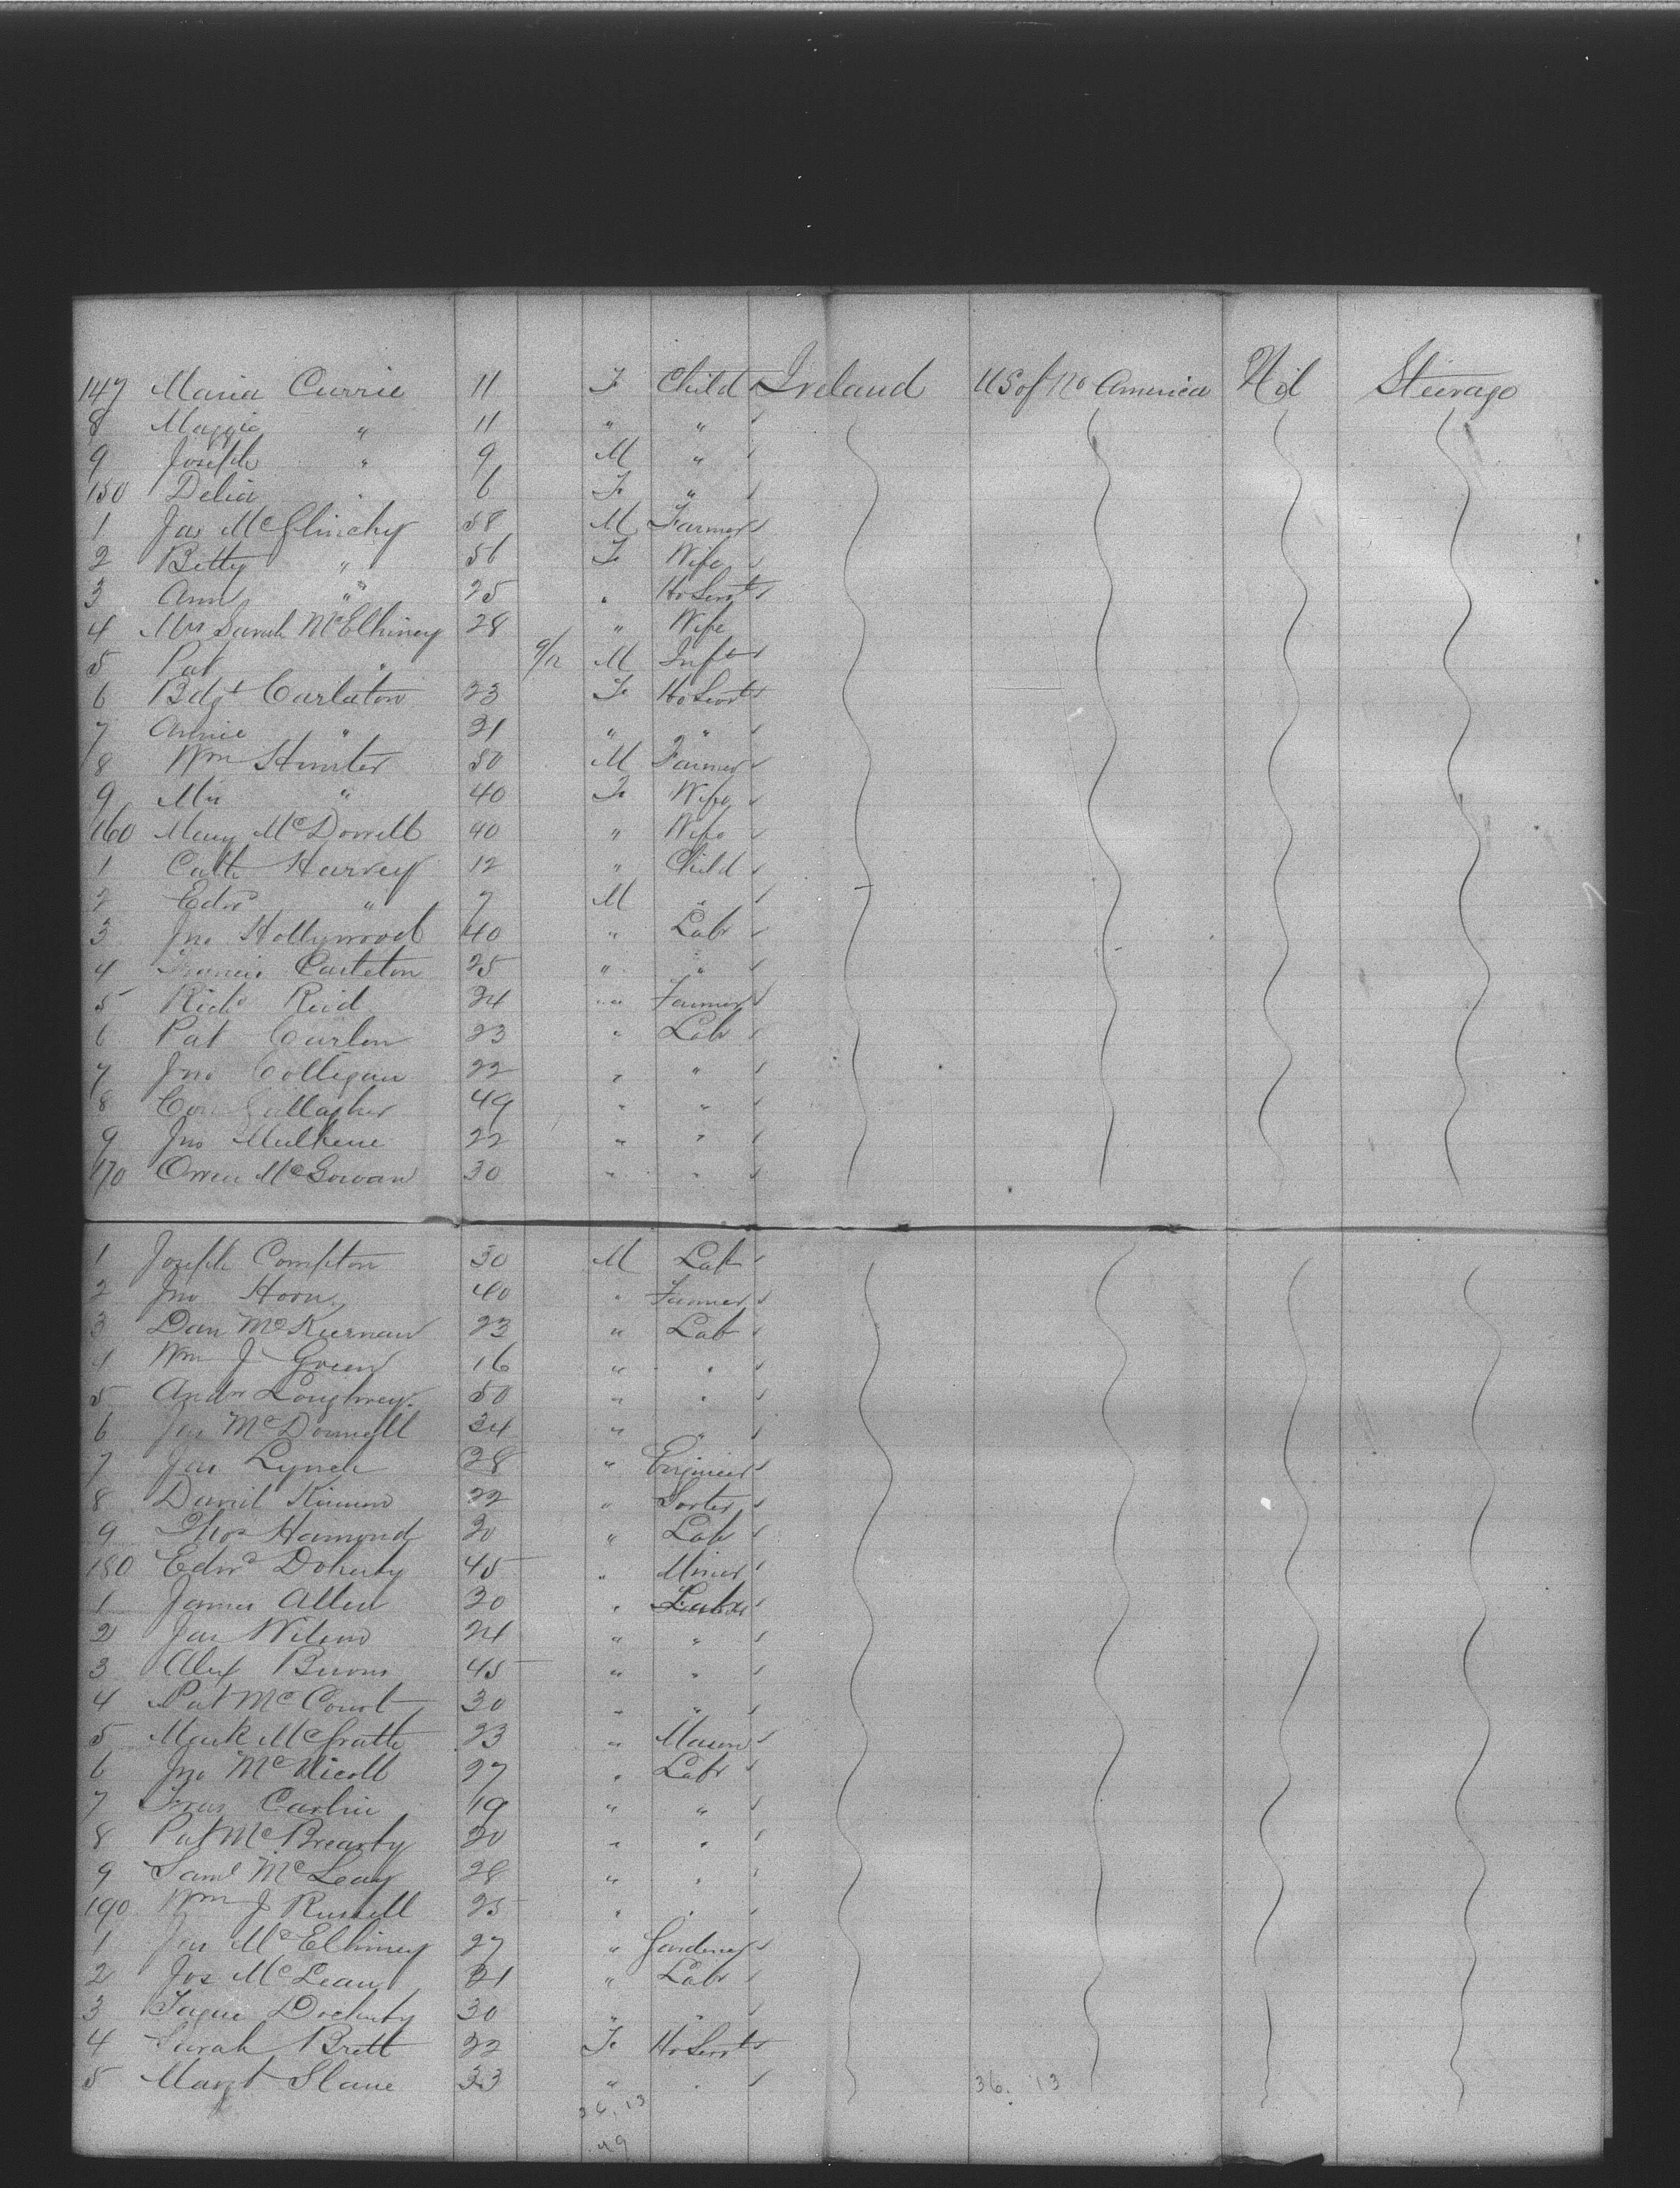 147 Maria Currie 11 F Child Ireland US of No America Nil Steerage
8 Maggie " 11 " "
9 Joseph " 9 M "
150 Delia " 6 F "
1 Jas McGlinchy 58 M Farmer
2 Betty " 56 F Wife
3 Ann " 25 " Ho Servt
4 Mrs Sarah McElhiney 28 " Wife
5 Pat " 9/12 M Inft
6 Bdgt Carleton 23 F Ho Servt
7 Annie " 21 " "
8 Wm Hunter 50 M Farmer
9 Mrs " 40 F Wife
160 Mary McDowell 40 " Wife
1 Cath Harvey 12 " Child
2 Edwd " 7 M "
3 Jno Hollywood 40 " Labr
4 Francis Carleton 25 " "
5 Richd Reid 24 " Farmer
6 Pat Carlon 23 " Labr
7 Jno Colligan 22 " "
8 Con Gallagher 49 " "
9 Jno Mulhene 22 " "
170 Owen McGowan 30 " "
1 Joseph Compton 30 M Lab
2 Jno Horn 40 " Farmer
3 Dan McKiernan 23 " Lab
4 Wm J Green 16 " "
5 Andw Loughrey 50 " "
6 Jas McDonnell 34 " "
7 Jas Lynch 28 " Engineer
8 David 22 " Sorter
9 Thos Hamond 20 " Lab
180 Edwd Doherty 45 " Miner
1 James Allen 30 " Labr
2 Jas Wilson 24 " "
3 Alex Burns 45 " "
4 Pat McCourt 30 " "
5 Mark McGrath 23 " Mason
6 Jno McNicoll 27 " Labr
7 Fras Carlin 19 " "
8 Pat McBrearty 20 " "
9 Saml McLeay 28 " "
190 Wm J Russell 25 " "
1 Jas McElhiney 27 " Gardener
2 Jos McLean 21 " Labr
3 Docherty 30 " "
4 Sarah Brett 22 F Ho Servt
5 Margt Slane 33 " "
36. 13
36. 13
49